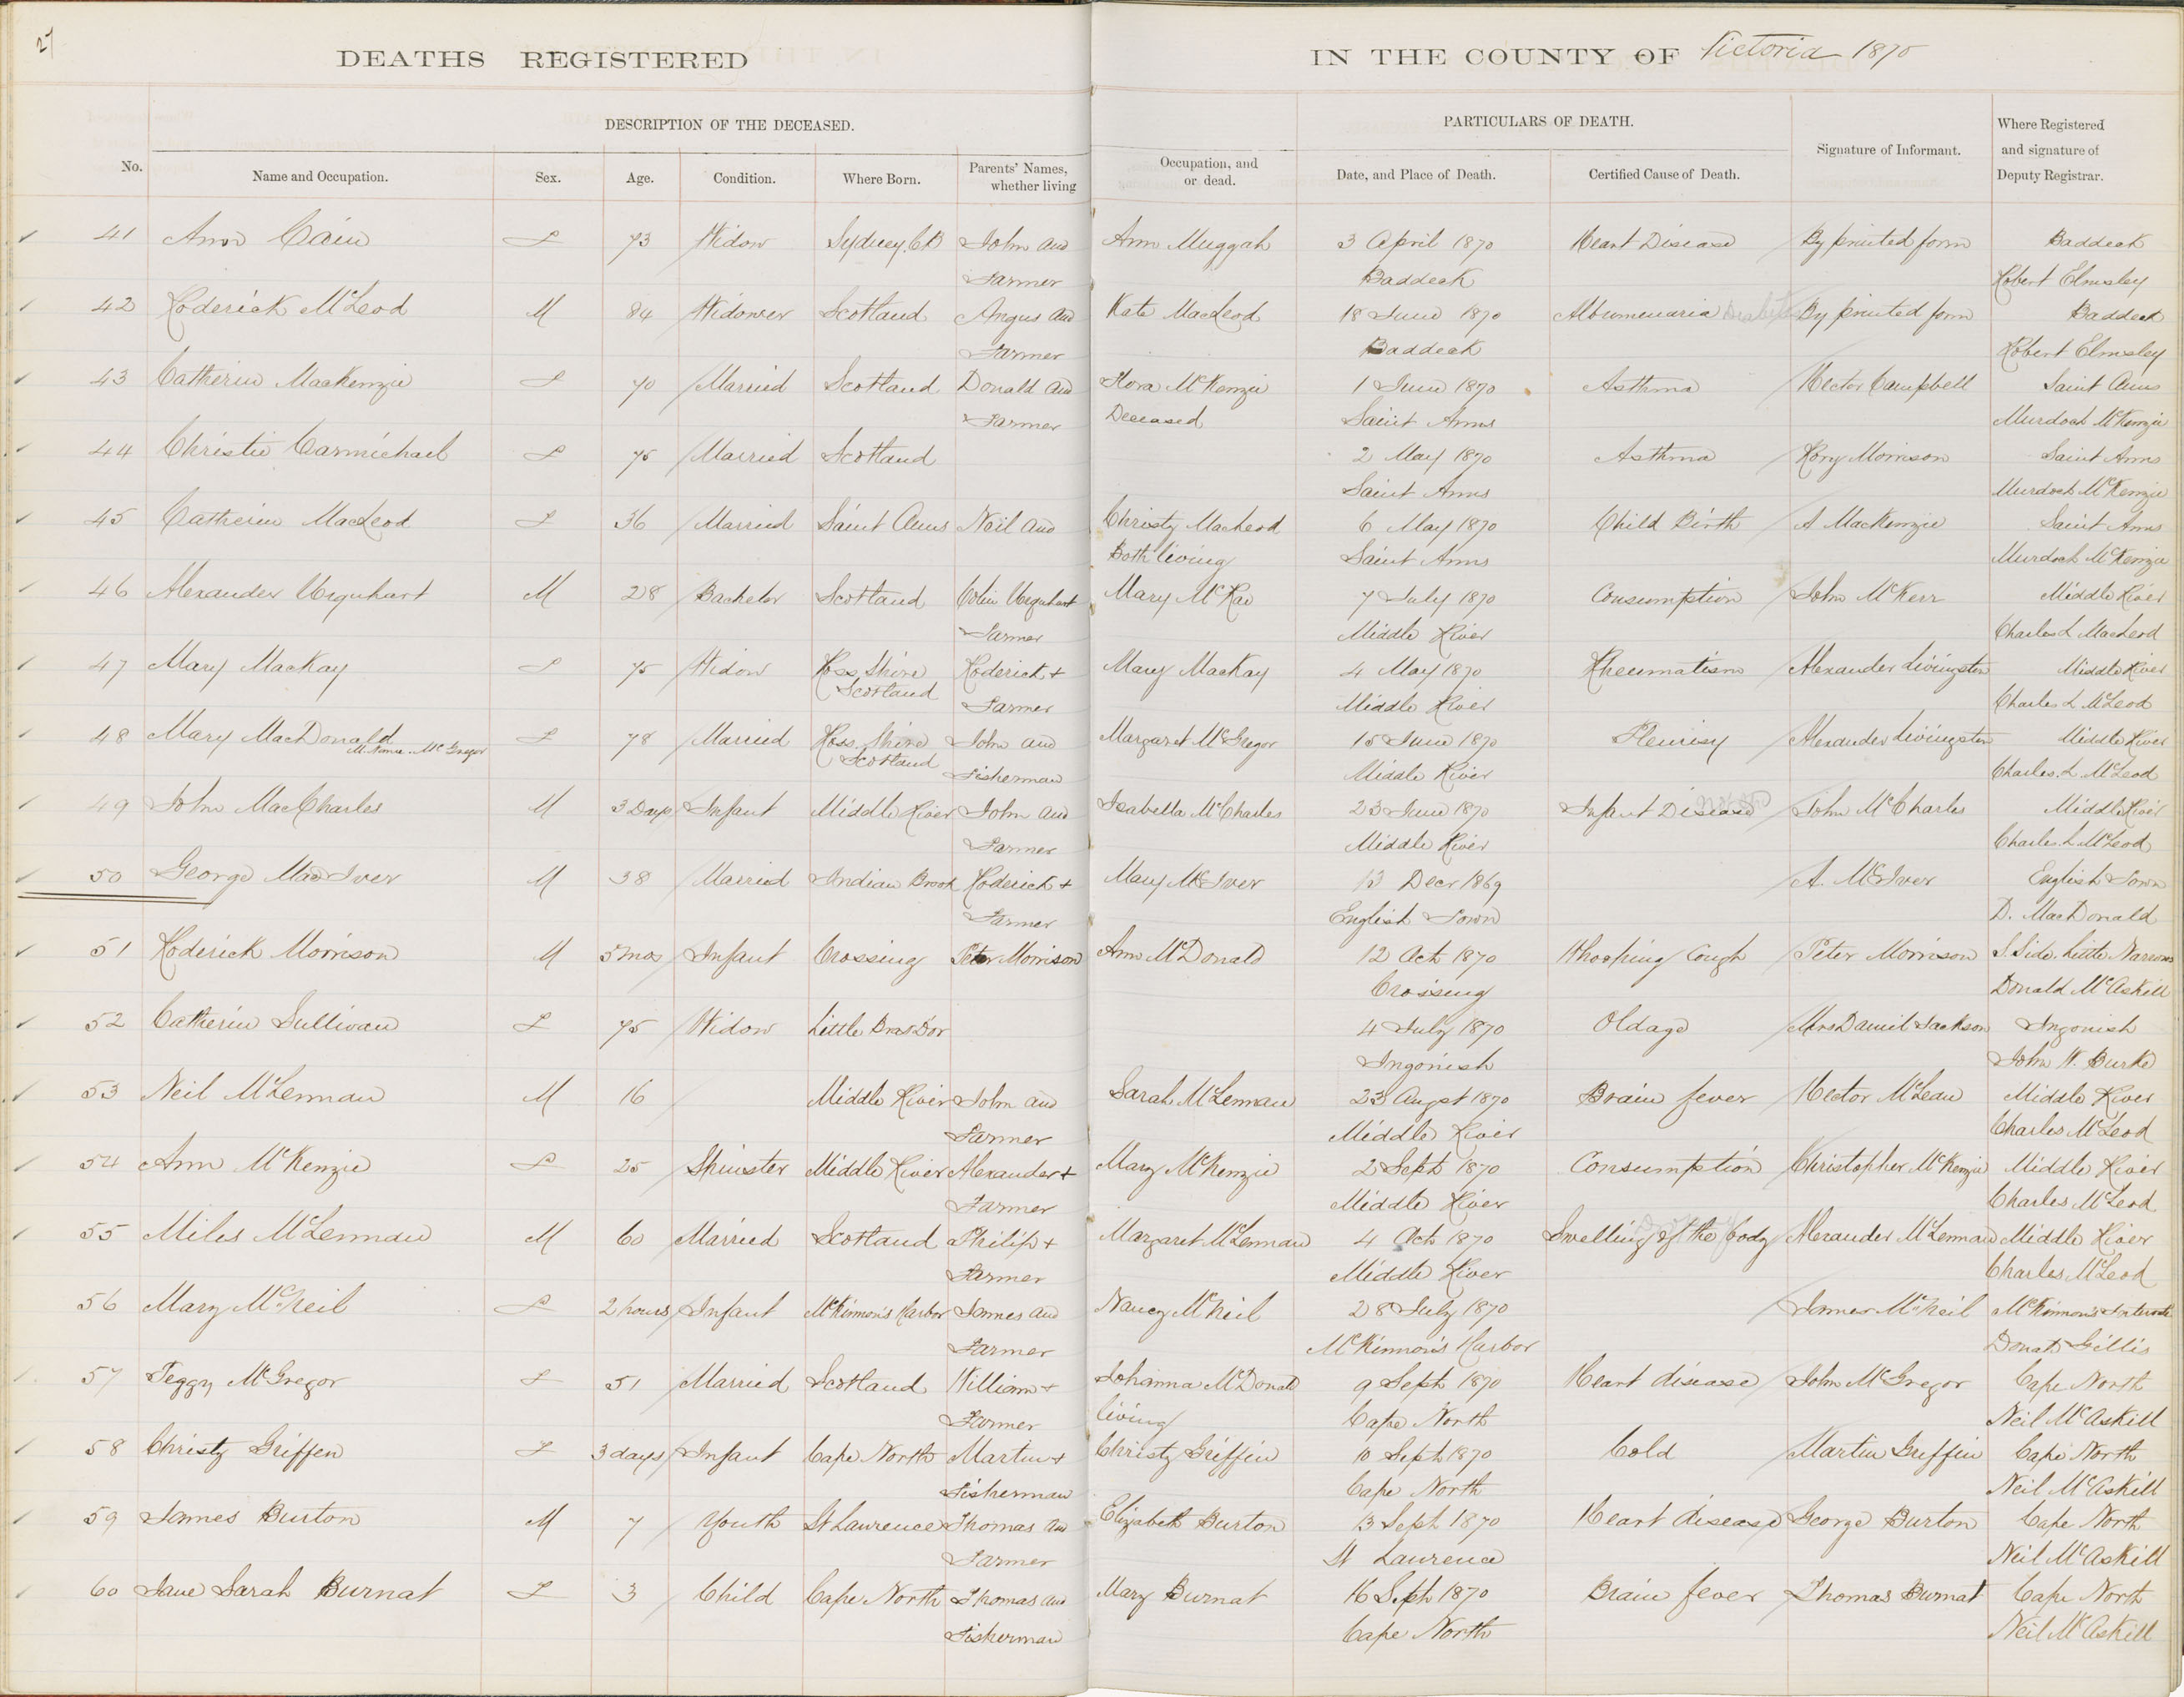 27
DEATHS REGISTERED IN THE COUNTY OF Victoria 1870
DESCRIPTION OF THE DECEASED. PARTICULARS OF DEATH. Where Registered
and signature of
Deputy Registrar.
No. Name and Occupation. Sex. Age. Condition. Where Born. Parents' Names, whether living Occupation, and or dead. Date, and Place of Death. Certified Cause of Death. Signature of Informant.
41 Ann Cain F 73 Widow Sydney C B John and Ann Muggah 3 April 1870 Heart Disease By printed form Baddeck
Farmer Baddeck Robert Elmsley
42 Roderick McLeod M 84 Widower Scotland Angus and Kate MacLeod 18 June 1870 Albumenaria By printed form Baddeck
Farmer Baddeck Robert Elmsley
43 Catherine MacKenzie F 70 Married Scotland Donald and Flora McKenzie 1 June 1870 Asthma Hector Campbell Saint Anns
Farmer Deceased Saint Anns Murdoch McKenzie
44 Christie Carmichael F 75 Married Scotland 2 May 1870 Asthma Rory Morrison Saint Anns
Saint Anns Murdoch McKenzie
45 Catherine MacLeod F 36 Married Saint Anns Neil and Christy MacLeod 6 May 1870 Child Birth A MacKenzie Saint Anns
Both living Saint Anns Murdoch McKenzie
46 Alexander Urquhart M 28 Bachelor Scotland Colin Urquhart Mary McRae 7 July 1870 Consumption John McKerr Middle River
Farmer Middle River Charles L MacLeod
47 Mary MacKay F 75 Widow Ross Shire Roderick + Mary MacKay 4 May 1870 Rheumatism Alexander Livingston Middle River
Scotland Farmer Middle River Charles L McLeod
48 Mary MacDonald F 78 Married Ross Shire John and Margaret McGregor 15 June 1870 Pleurisy Alexander Livingston Middle River
M. Name. McGregor Scotland Fisherman Middle River Charles L McLeod
49 John MacCharles M 3 Days Infant Middle River John and Isabella McCharles 23 June 1870 Infant Disease John McCharles Middle River
Farmer Middle River Charles L McLeod
50 George MacIver M 38 Married Indian Brook Roderick + Mary McIver 13 Decr 1869 A. McIver English Town
Farmer English Town D. MacDonald
51 Roderick Morrison M 5 mos Infant Crossing Peter Morrison Ann McDonald 12 Oct 1870 Whooping Cough Peter Morrison S. Side Little Narrows
Crossing Donald McAskill
52 Catherine Sullivan F 75 Widow Little Bras Dor 4 July 1870 Oldage Mrs Daniel Jackson Ingonish
Ingonish John W. Burke
53 Neil McLennan M 16 Middle River John and Sarah McLennan 23 Augst 1870 Brain fever Hector McLean Middle River
Farmer Middle River Charles McLeod
54 Ann McKenzie F 25 Spinster Middle River Alexander + Mary McKenzie 2 Sept 1870 Consumption Christopher McKenzie Middle River
Farmer Middle River Charles McLeod
55 Miles McLennan M 60 Married Scotland Philip + Margaret McLennan 4 Oct 1870 Swelling of the body Alexander McLennan Middle River
Farmer Middle River Charles McLeod
56 Mary McNeil F 2 hours Infant McKinnon's Harbor James and Nancy McNeil 28 July 1870 James McNeil McKinnon's
Farmer McKinnon's Harbor Donald Gillis
57 Peggy McGregor F 51 Married Scotland William + Johanna McDonald 9 Sept 1870 Heart disease John McGregor Cape North
Farmer living Cape North Neil McAskill
58 Christy Griffen F 3 days Infant Cape North Martin + Christy Griffin 10 Sept 1870 Cold Martin Griffin Cape North
Fisherman Cape North Neil McAskill
59 James Burton M 7 Youth St Lawrence Thomas and Elizabeth Burton 13 Sept 1870 Heart disease George Burton Cape North
Farmer St Laurence Neil McAskill
60 Jane Sarah Burnat F 3 Child Cape North Thomas and Mary Burnat 16 Sept 1870 Brain fever Thomas Burnat Cape North
Fisherman Cape North Neil McAskill